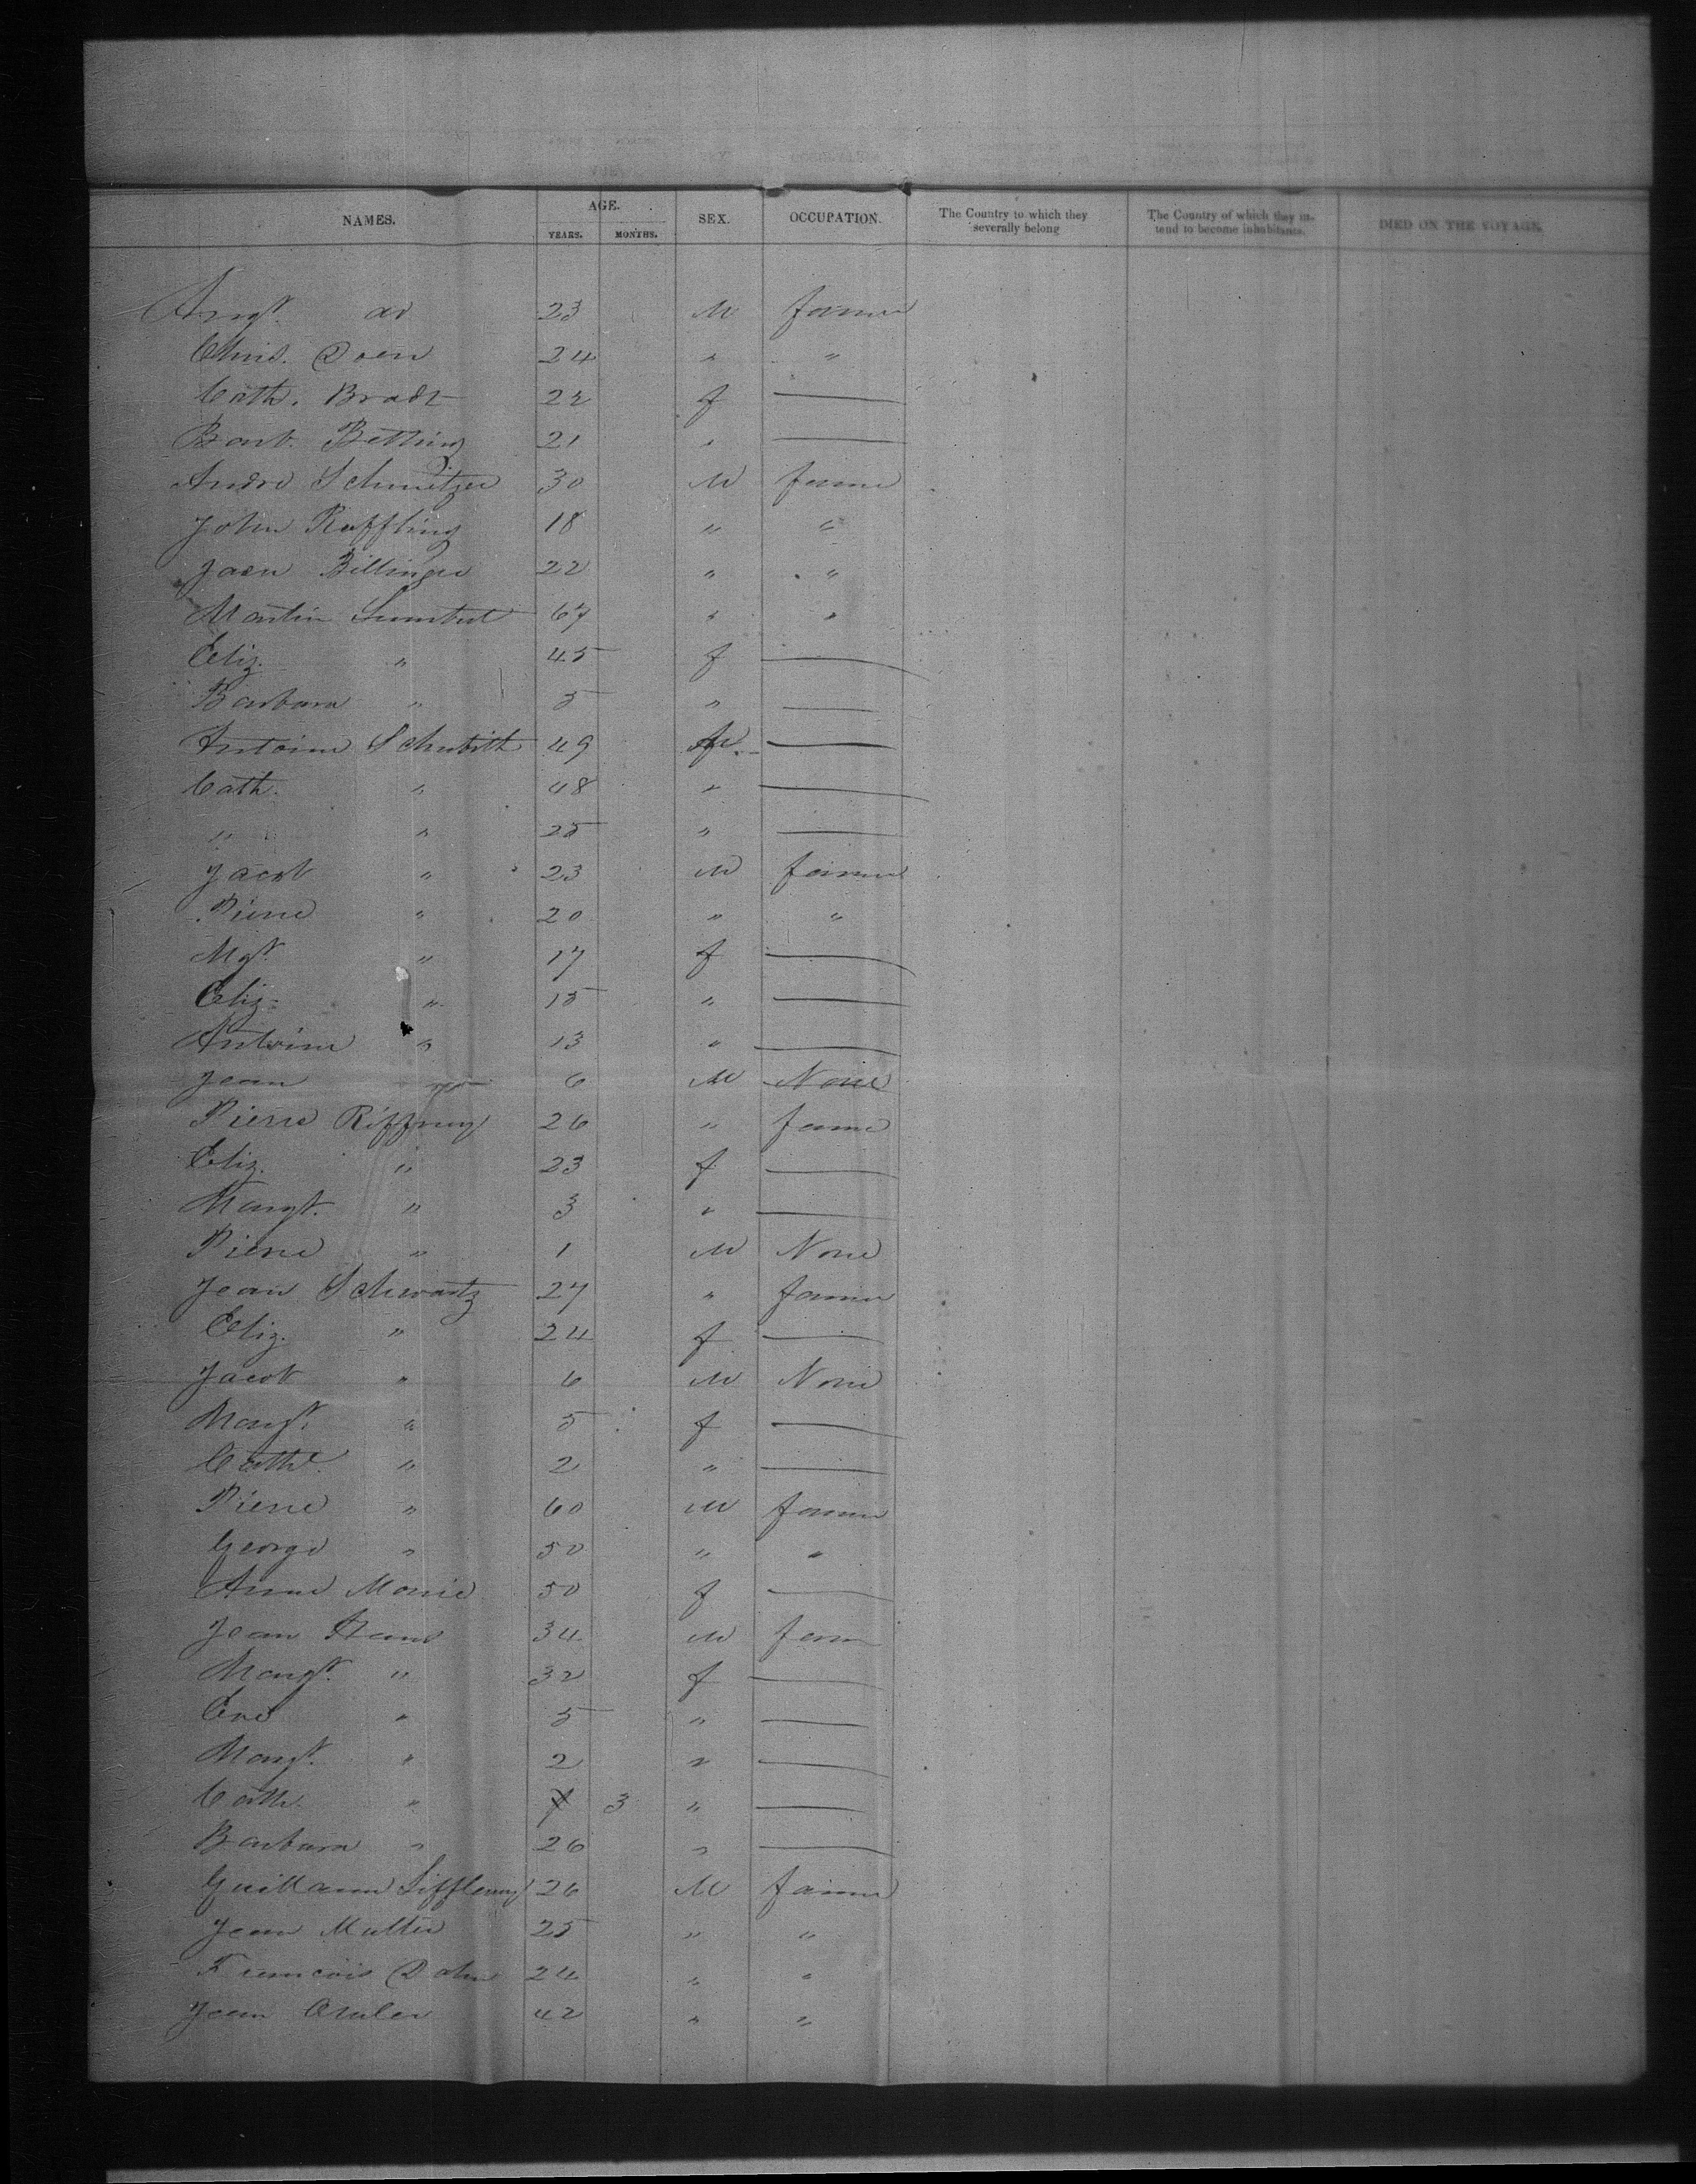 NAMES. AGE. YEARS. MONTHS. SEX. OCCUPATION. The Country to which they severally belong The Country of which they intend to become inhabitants. DIED ON THE VOYAGE.
do 23 M farmer
Chris. Doen 24 " "
Cath. Bradt 22 f —
Barb. Betting 21 " —
Andre Schmitzer 30 M farmer
John Roffling 18 " "
Jaen Billinger 22 " "
Martin 67 " "
Eliz. " 45 f —
Barbara " 5 " —
Antoine Schubith 49 —
Cath. " 48 " —
" " 25 " —
Jacob " 23 M farmer
Pierre " 20 " "
Mgt. " 17 f —
Eliz. " 15 " —
Antoine " 13 " —
Jean " 6 M None
Pierre 26 " farmer
Eliz. " 23 f —
Margt. " 3 " —
Pierre " 1 M None
Jean Schwartz 27 " farmer
Eliz. " 24 f —
Jacob " 6 M None
Margt. " 5 f —
Cathe. " 2 " —
Pierre " 60 M farmer
George " 50 " "
Anne Marie 50 f —
Jean 34 M farm
Margt. " 32 f —
Eve " 5 " —
Margt. " 2 " —
Cath. " 3 " —
Barbara " 26 " —
Guillaume 26 M farmer
Jean Muller 25 " "
Francois Dahm 24 " "
Jean 42 " "